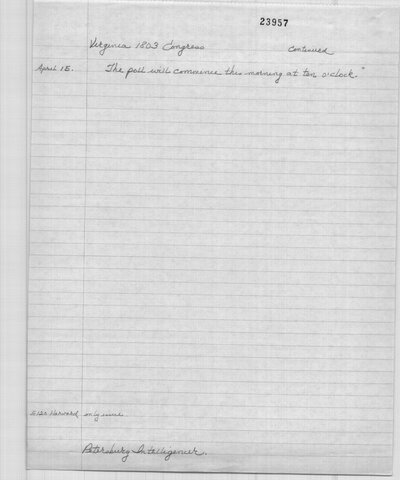 23957
Virginia 1803 Congress continued
April 15. The poll will commence this morning at ten o'clock."
Harvard only issue
Petersburg Intelligencer.